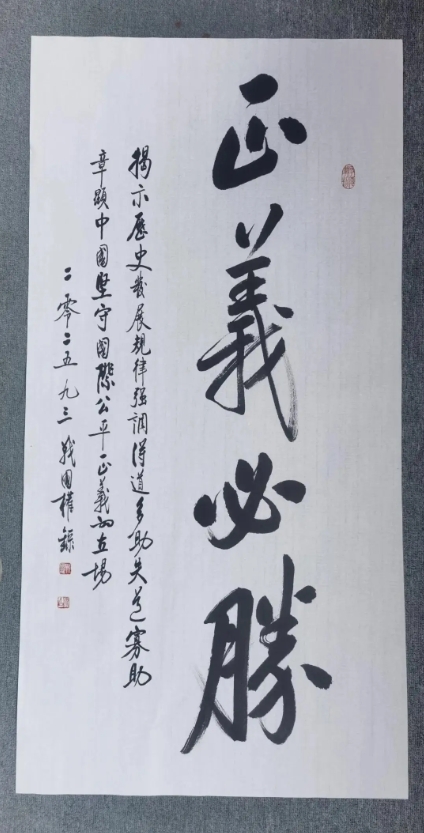 正義必勝
揭示歷史發展規律強調得道多助失道寡助
章顯中國堅守國際公平正義的立場
二零二五九三戰國權錄